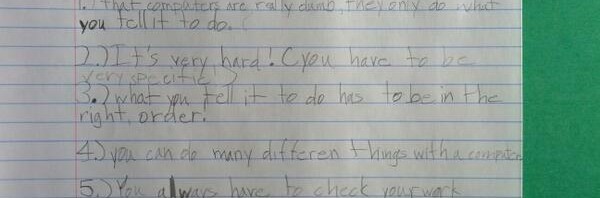 1. That computers are really dumb, they only do what
you tell it to do. (
2.) It's very hard! (you have to be
very specific)
3.) what you tell it to do has to be in the
right order.
4.) you can do many differen things with a computer
5.) You always have to check your work